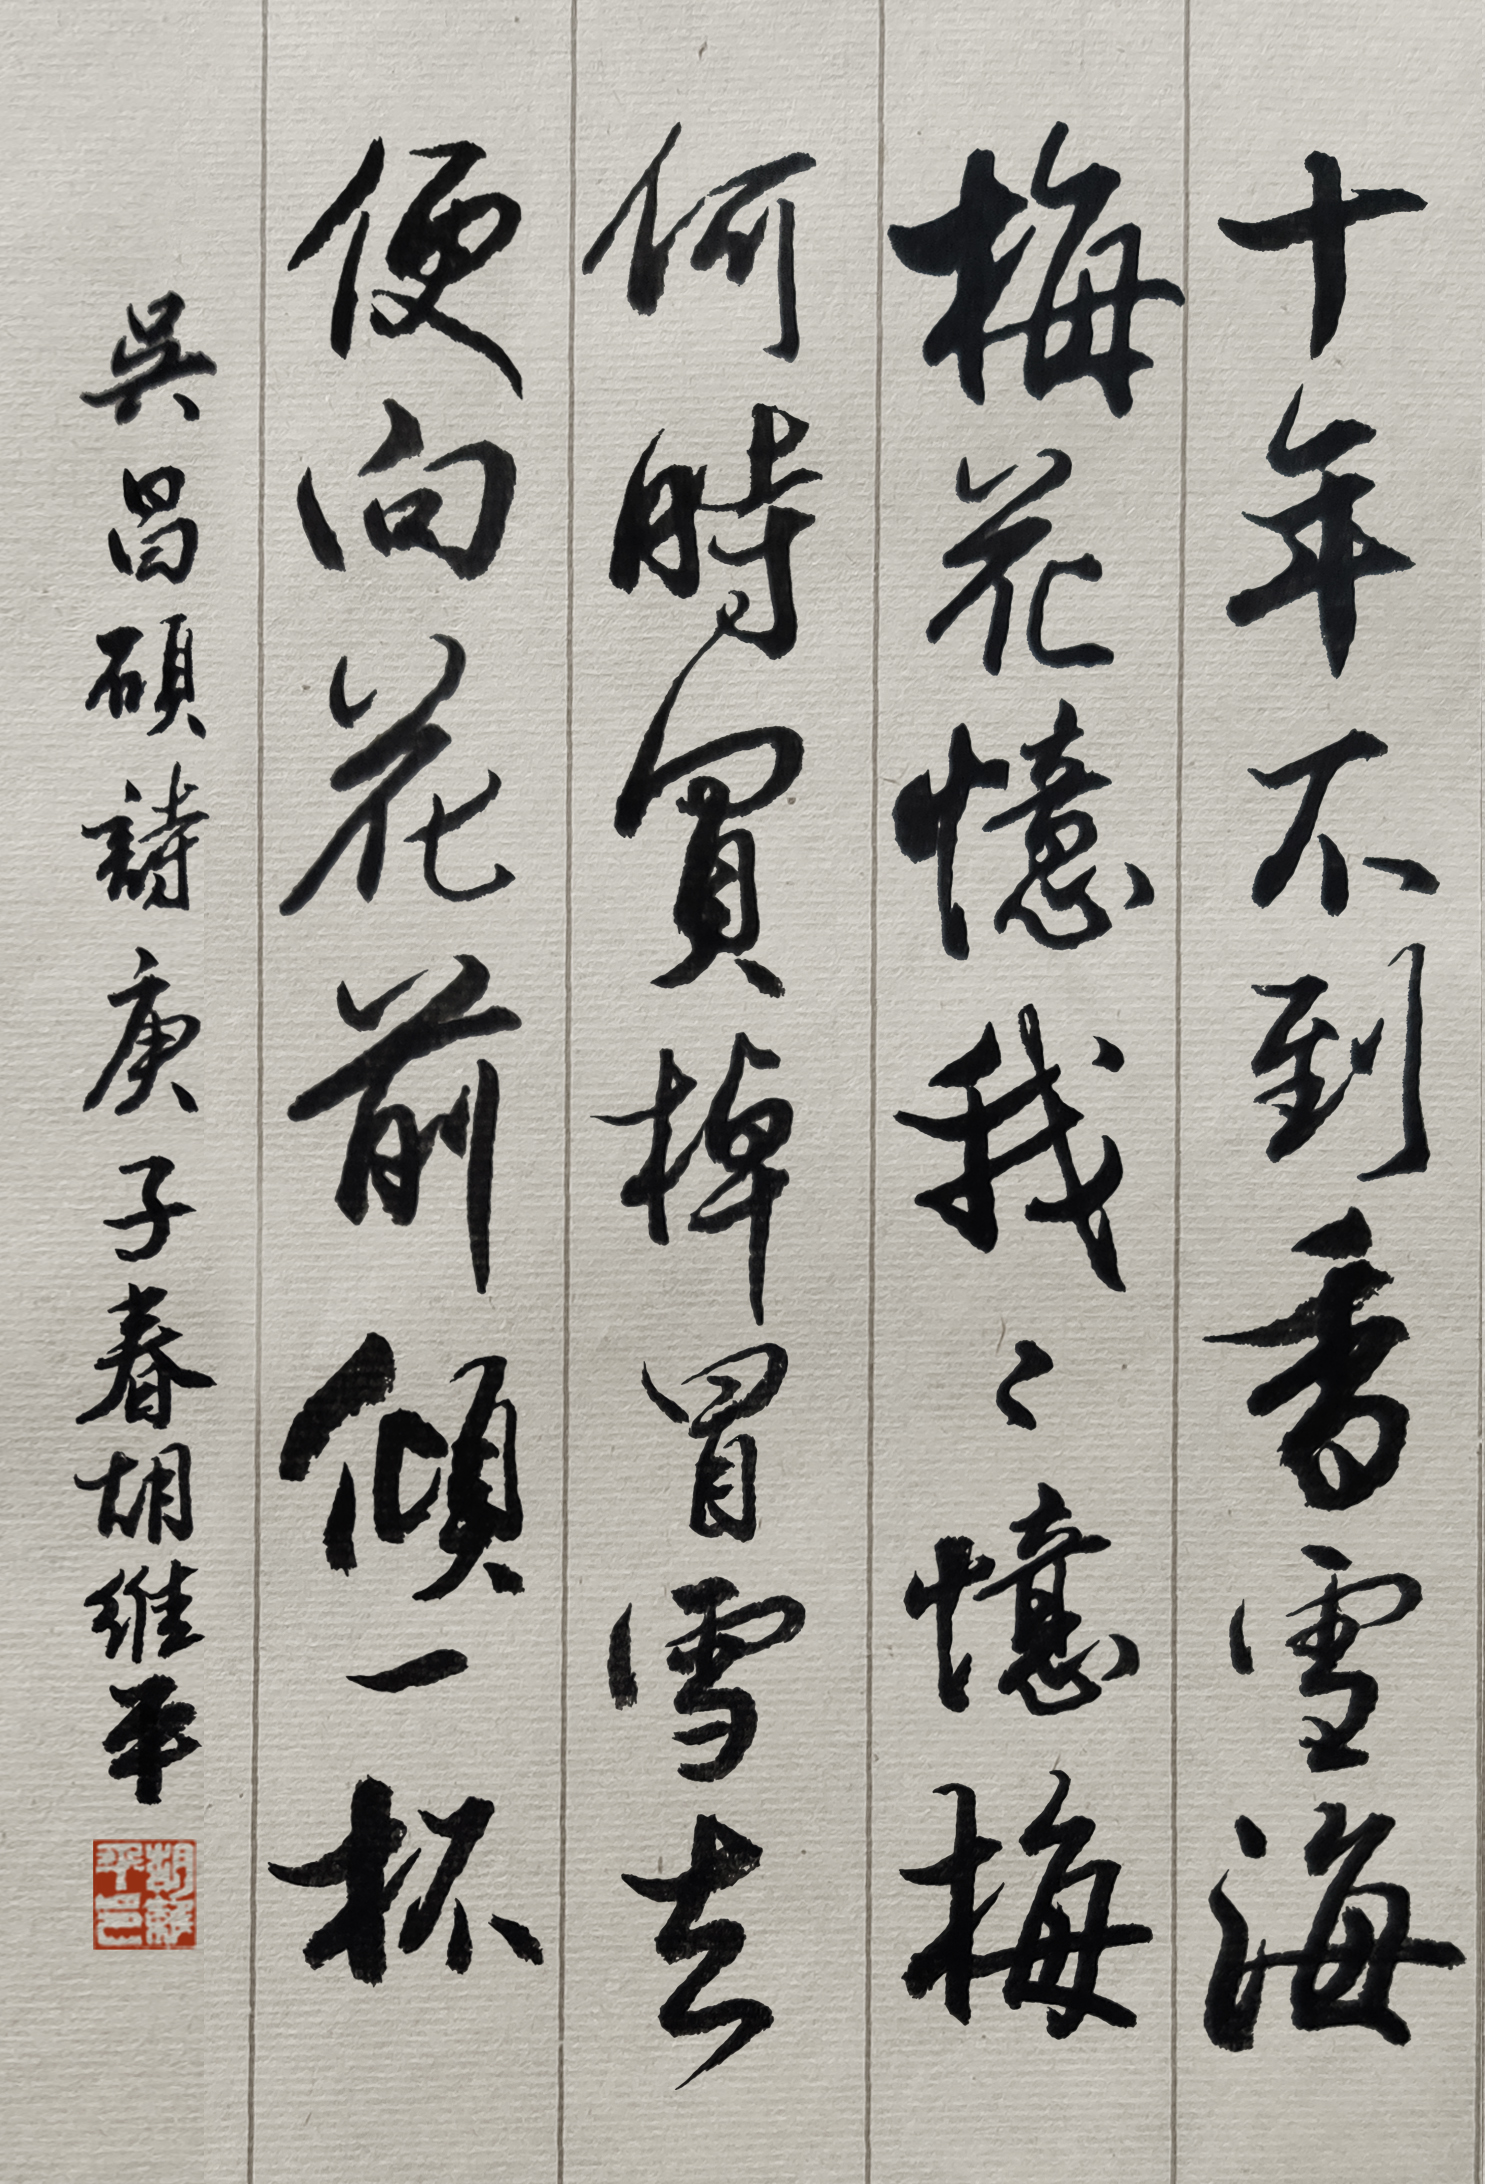 十年不到香雪海
梅花憶我々憶梅
何時買棹冒雪去
便向花前傾一杯
吳昌碩詩庚子春胡維平
胡維
平印